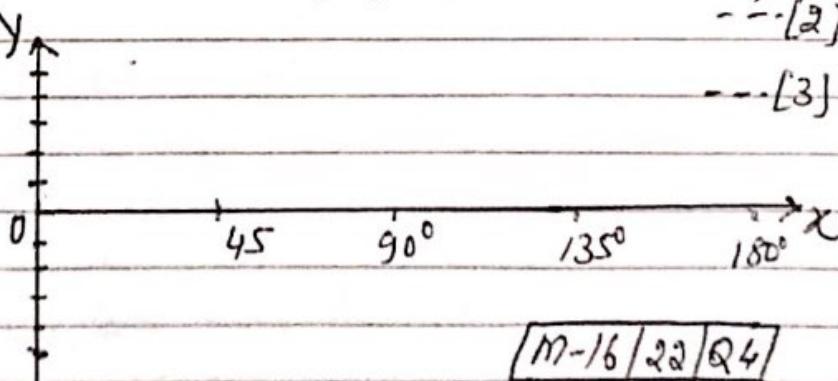 ---[2]
y
---[3]
0 45 90° 135° 180° x
M-16/22/Q4